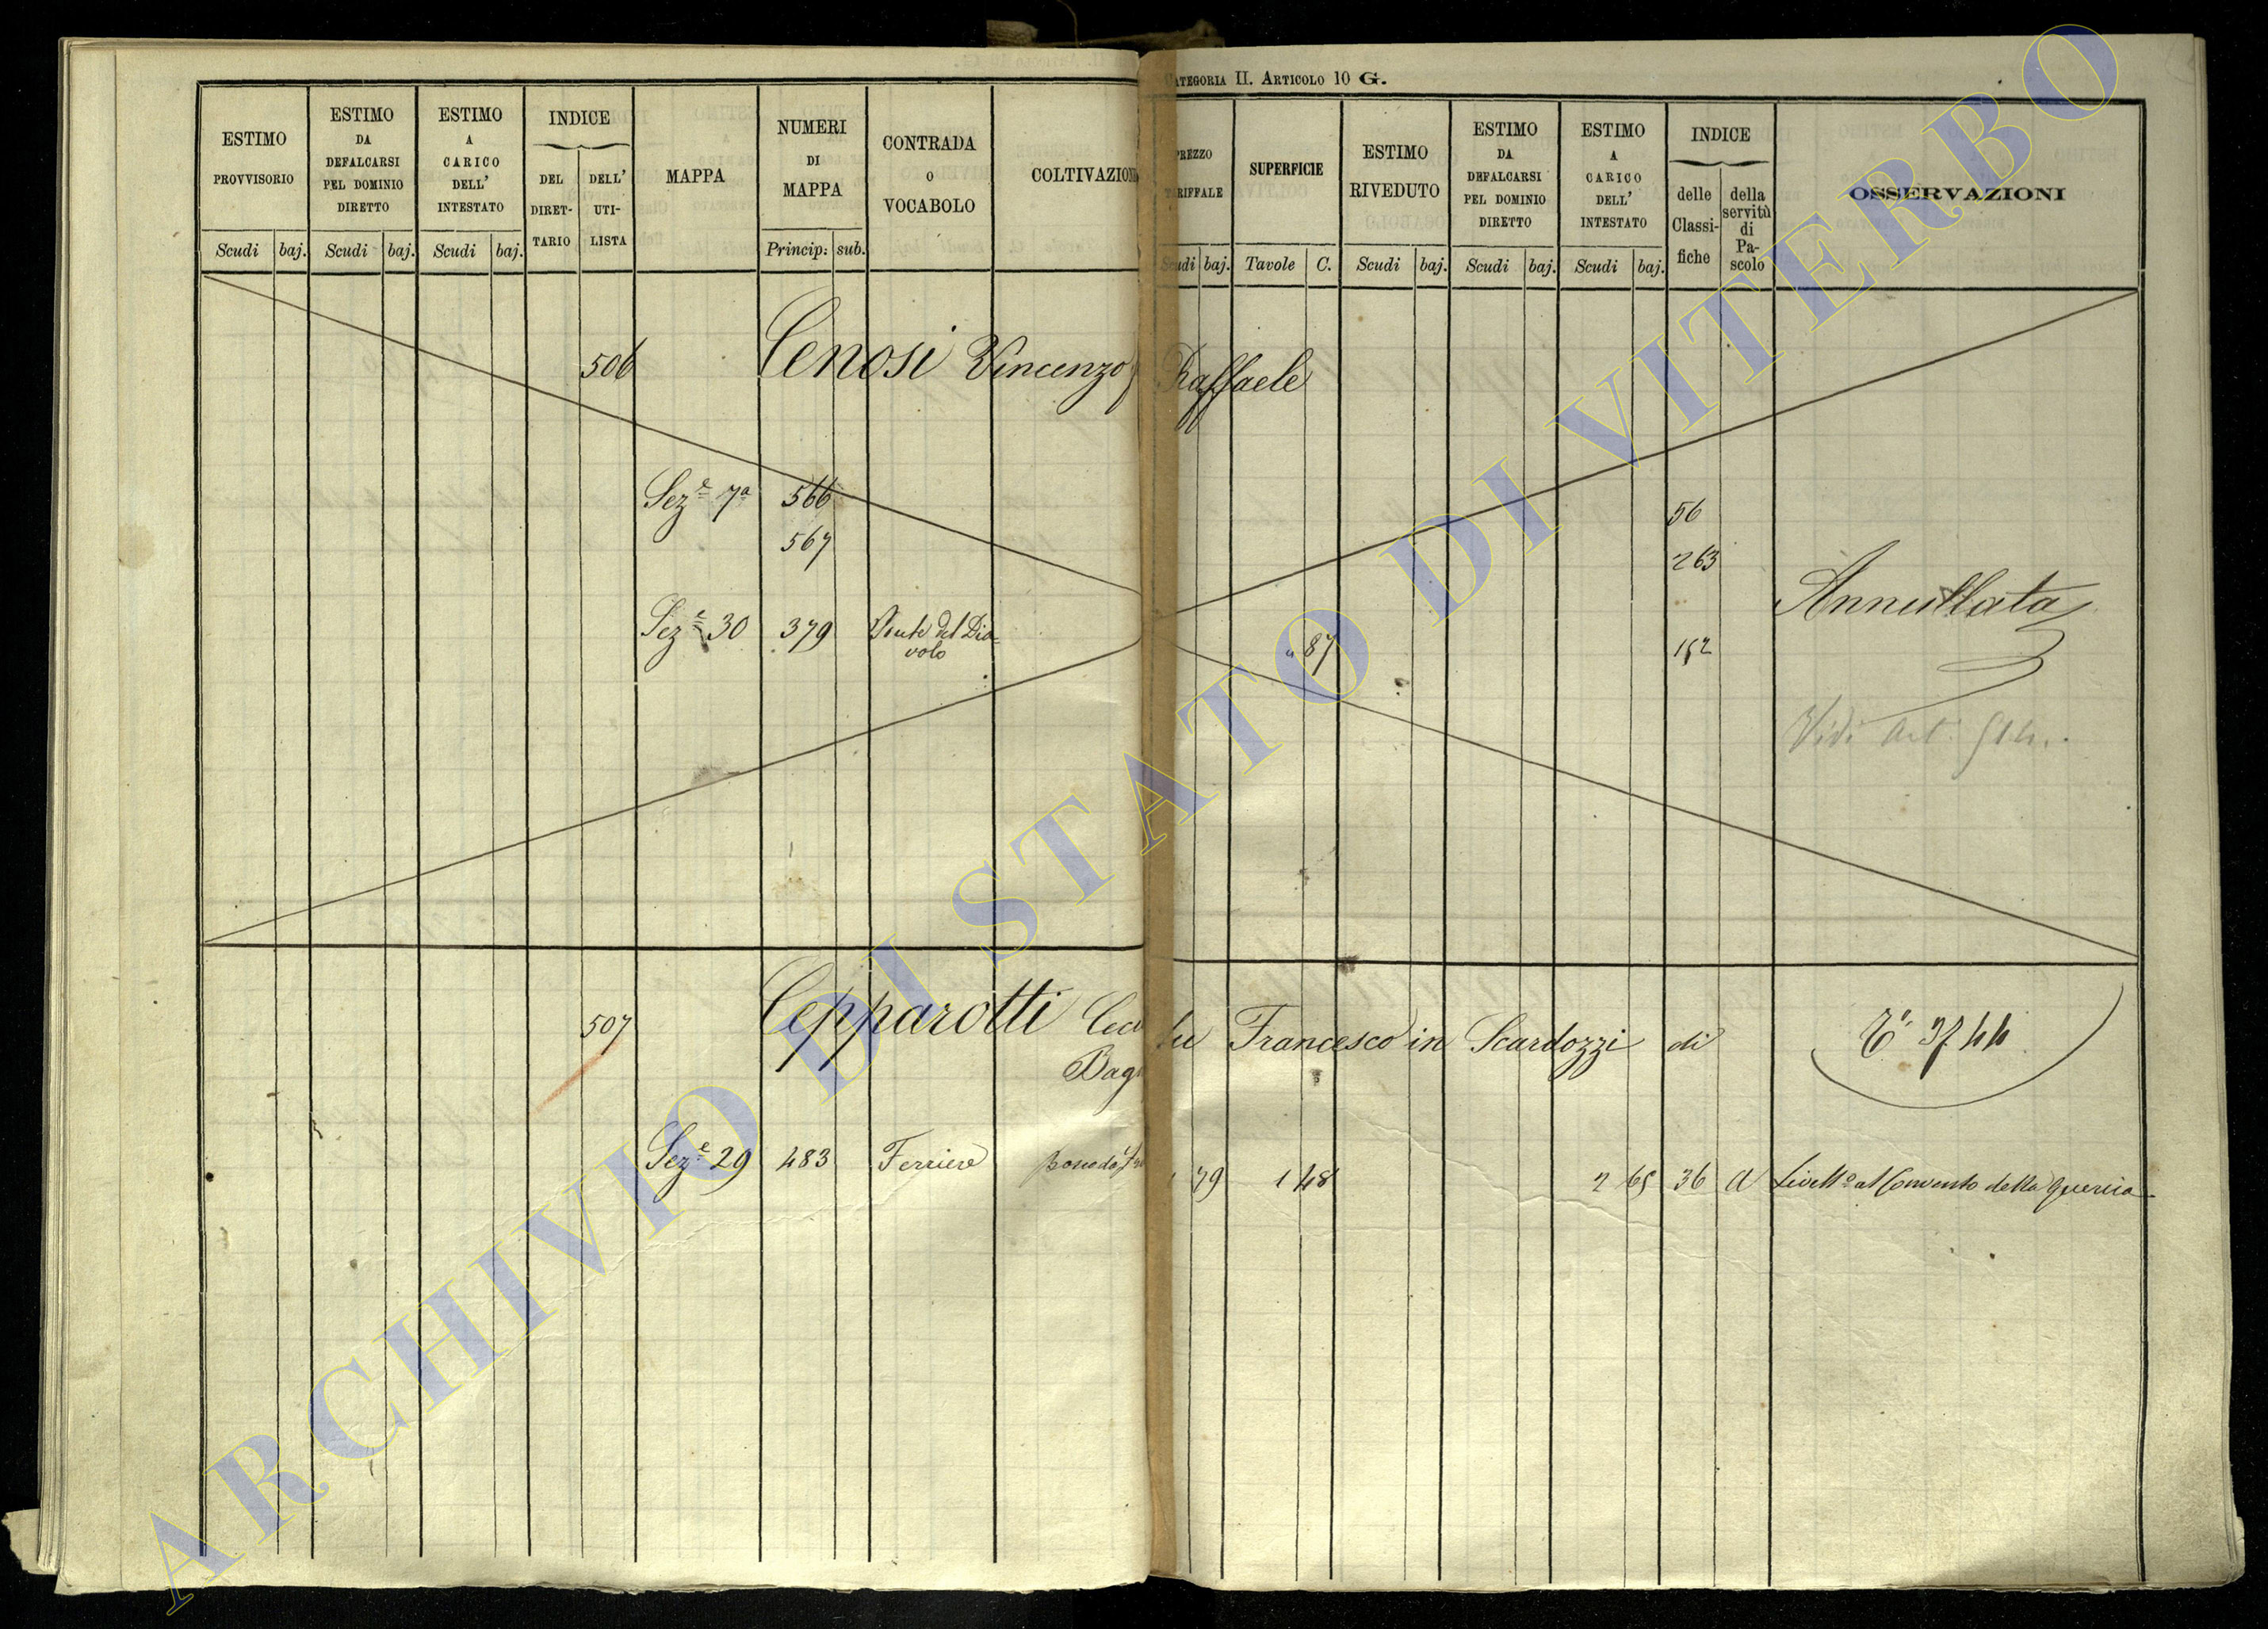 CATEGORIA II. ARTICOLO 10 G.
ESTIMO PROVVISORIO
Scudi baj.
ESTIMO DA DEFALCARSI PEL DOMINIO DIRETTO
Scudi baj.
ESTIMO A CARICO DELL' INTESTATO
Scudi baj.
INDICE
DEL DIRET-
TARIO
DELL' UTI-
LISTA
MAPPA
NUMERI DI MAPPA
Princip: sub.
CONTRADA O VOCABOLO
COLTIVAZION
PREZZO TARIFFALE
Scudi baj.
SUPERFICIE
Tavole C.
ESTIMO RIVEDUTO
Scudi baj.
ESTIMO DA DEFALCARSI PEL DOMINIO DIRETTO
Scudi baj.
ESTIMO A CARICO DELL' INTESTATO
Scudi baj.
INDICE
delle Classi-
fiche
della servitù di Pa-
scolo
OSSERVAZIONI
506 Cenosi Vincenzo Raffaele
Sez.e 7a 566 56
567 263
Annullata
Sez.e 30 379 Ponte del Dia=
volo
87 152
Vidi Art.
507 Cepparotti Cec fu Francesco in Scardozzi di
Bag
Sez.e 29 483 Ferriere 79 1 48 2 65 36 a Livello al Convento della Quercia
ARCHIVIO DI STATO DI VITERBO